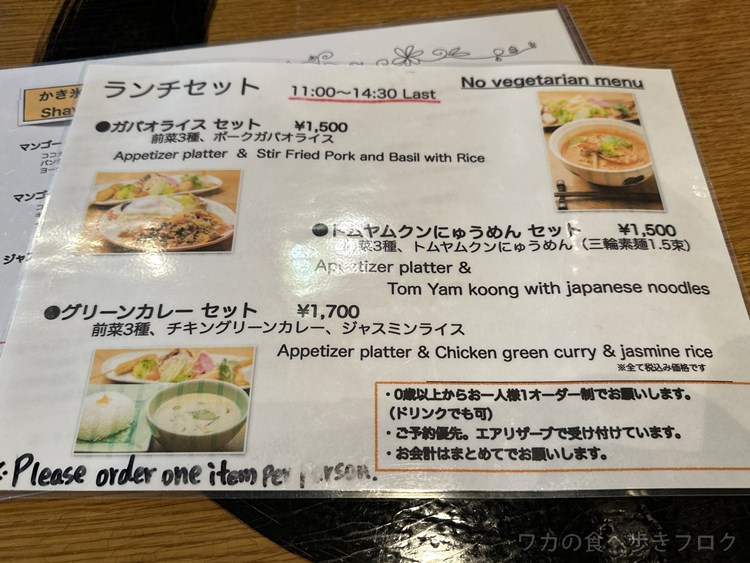 ランチセット 11:00〜14:30 Last No vegetarian menu
かき氷
Shav
●ガパオライス セット ¥1,500
前菜3種、ポークガパオライス
Appetizer platter & Stir Fried Pork and Basil with Rice
マンゴー
マンゴ
ジャス
●トムヤムクンにゅうめん セット ¥1,500
前菜3種、トムヤムクンにゅうめん（三輪素麺1.5束）
Appetizer platter &
Tom Yam koong with japanese noodles
●グリーンカレー セット ¥1,700
前菜3種、チキングリーンカレー、ジャスミンライス
Appetizer platter & Chicken green curry & jasmine rice
※全て税込み価格です
・0歳以上からお一人様1オーダー制でお願いします。
（ドリンクでも可）
・ご予約優先。エアリザーブで受け付けています。
・お会計はまとめてでお願いします。
Please order one item per person.
ワカの食べ歩きブログ